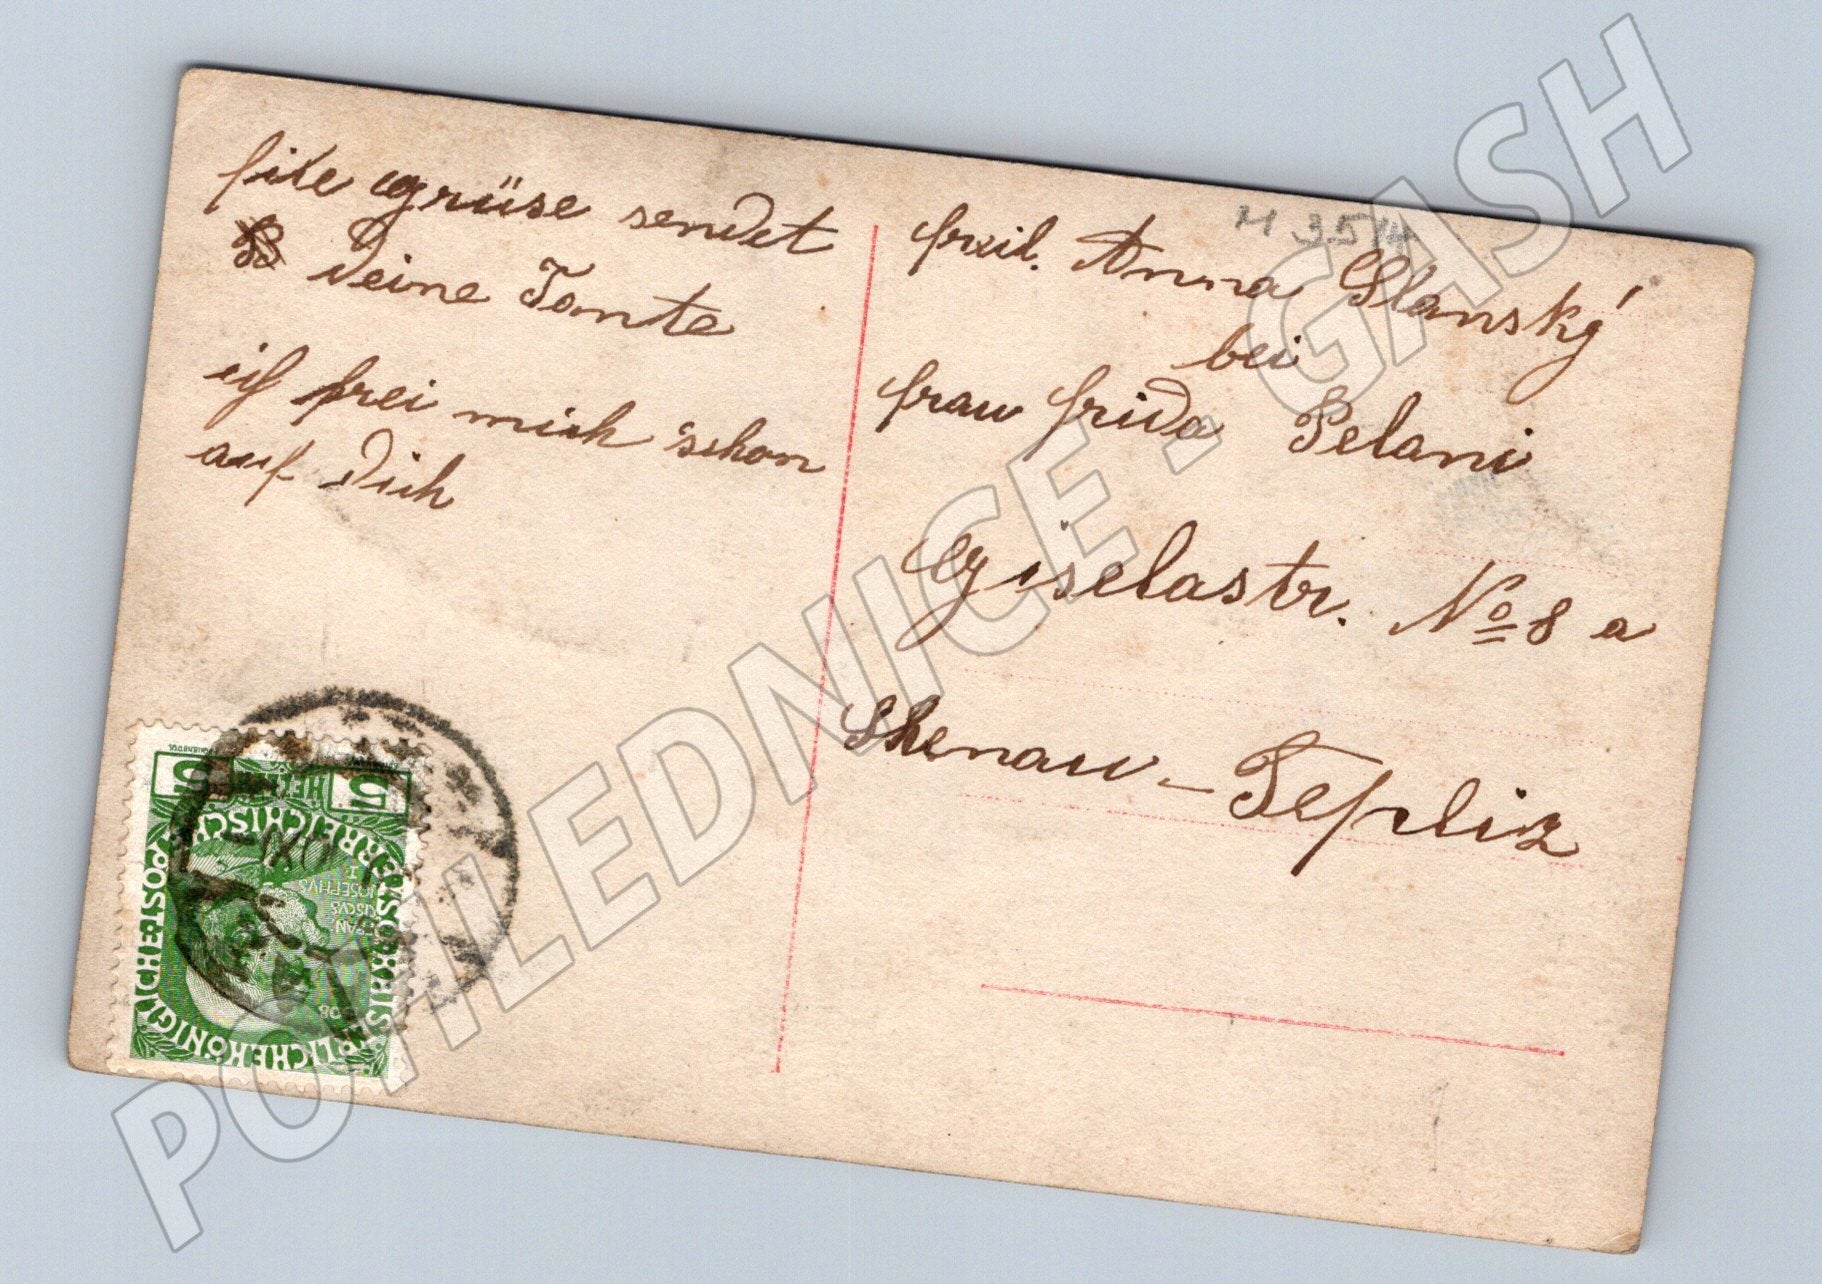 file grüse sendet
deine Tante
ich frei mich schon
auf dich
M 35/4
freil. Anna Slanský
bei
frau frida Pelani
Giselastr. No 8 a
Shenau - Tepliz
5 5
HELLER
KAISERLICHE KÖNIGLICHE ÖSTERREICHISCHE POST
JOSEPHVS
I
POHLEDNICE - GASH